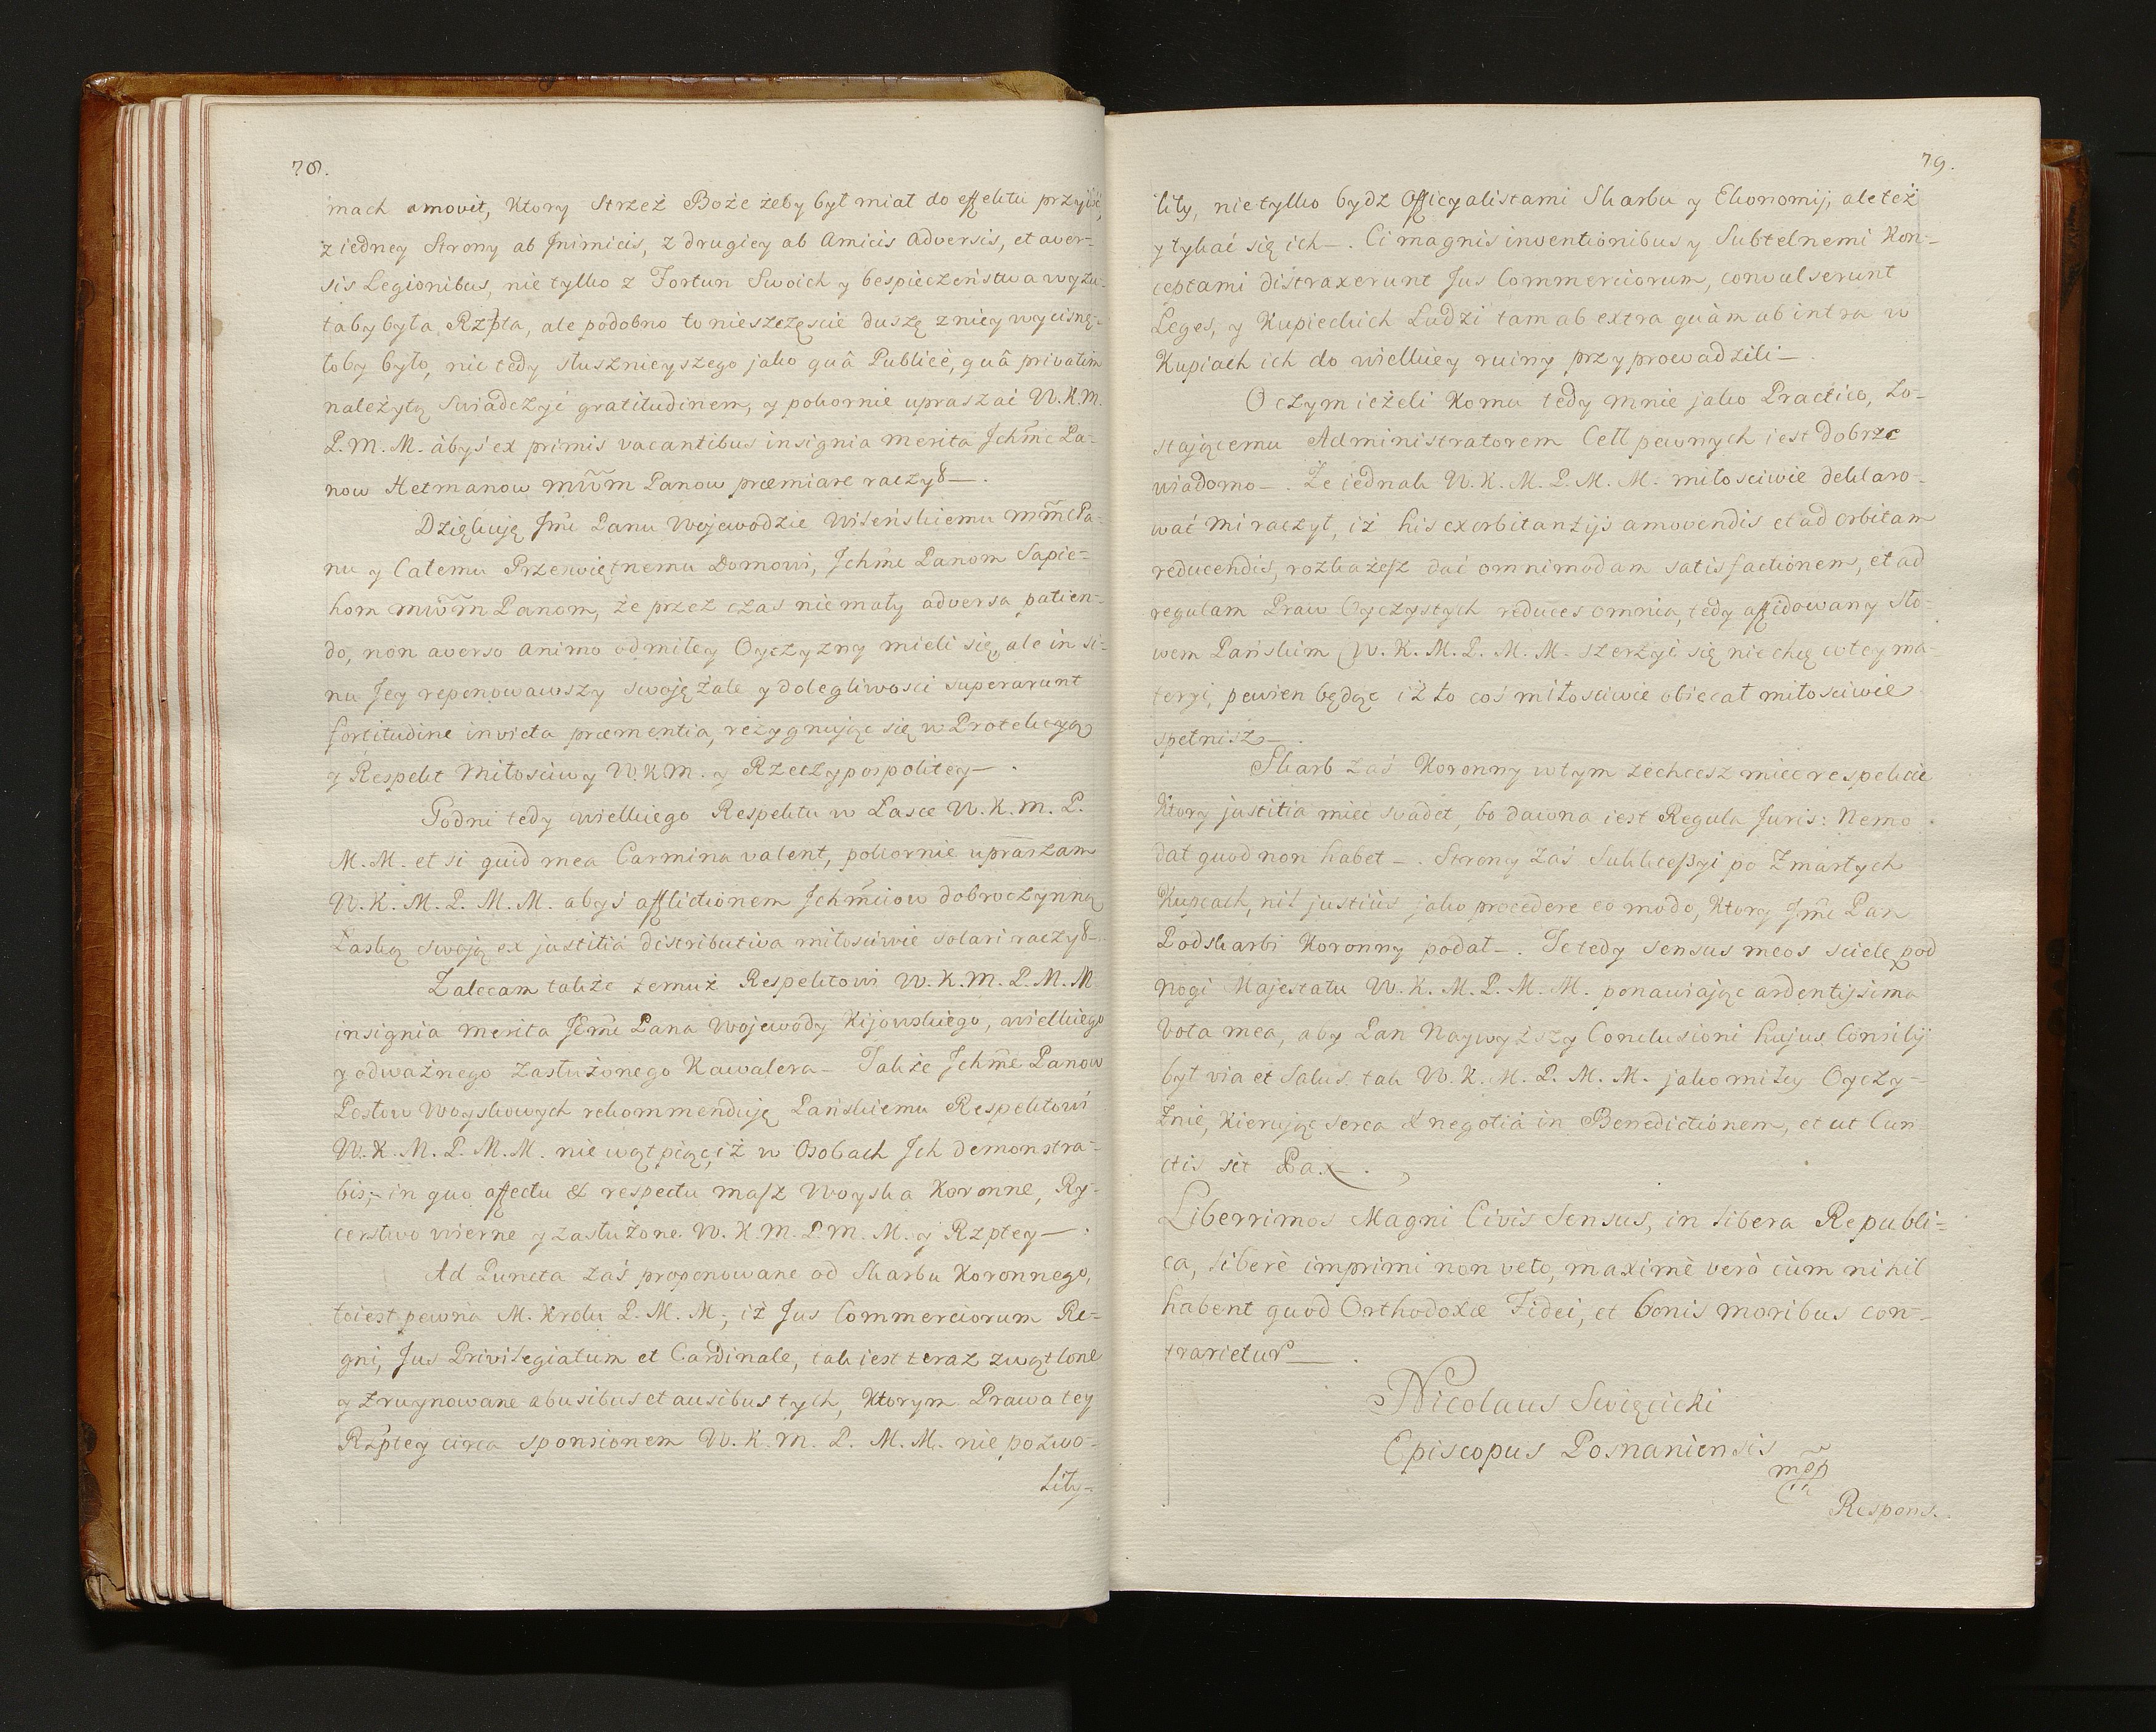 78.
mach amovit, Ktory Strzeż Boże żeby był miał do effektu przyiść,
z iedney Strony ab Inimicis, z drugiey ab Amicis Adversis, et aver-
sis Legionibus, nie tylko z Fortun Swoich y bespieczeństwa wyzu-
taby była Rzpta, ale podobno to nieszczęscie duszę z niey wycisnę-
łoby było, nic tedy słusznieyszego jako quâ Publicè, quâ privatim
należytą Swiadczyć gratitudinem, y pokornie upraszać W.K.M.
P.M.M. abyś ex primis vacantibus insignia merita Jchmc Pa-
now Hetmanow mwm Panow præmiare raczył—.
Dziękuję Jmc Panu Wojewodzie Wileńskiemu mmc Pa-
nu y Całemu Przeswiętnemu Domowi, Jchmc Panom Sapie=
hom mwm Panom, że przez czas nie mały adversa patien-
do, non averso animo od miłey Oyczyzny mieli się, ale in si-
nu Jey reponowawszy swoję żale y dolegliwosci superarunt
fortitudine invicta præmentia, rezygnując się w Protekcyą
y Respekt Miłosciwy W.K.M. y Rzeczypospolitey—.
Godni tedy wielkiego Respektu w Łasce W.K.M.P.
M.M. et si quid mea Carmina valent, pokornie upraszam
W.K.M.P.M.M. abyś afflictionem Jchmciow dobroczynną
Łaską swoją ex justitiâ distributiva miłosciwie solari raczył—.
Zalecam także temuż Respektowi W.K.M.P.M.M
insignia merita Jmc Pana Wojewody Kijowskiego, wielkiego
y odważnego Zasłużonego Kawalera— Także Jchmc Panow
Posłow Woyskowych rekommenduję Pańskiemu Respektowi
W.K.M.P.M.M. nie wątpiąc, iż w Osobach Jch demonstra-
bis,— in quo affectu & respectu masz Woyska Koronne, Ry-
cerstwo wierne y zasłużone W.K.M.P.M.M. y Rzptey—.
Ad Puncta zaś proponowane od Skarbu Koronnego,
toiest pewna M. Krolu P.M.M., iż Jus Commerciorum Re-
gni, Jus Privilegiatum et Cardinale, tak iest teraz zwątlone
y zruynowane abusibus et ausibus tych, Ktorym Prawa tey
Rzptey circa sponsionem W.K.M.P.M.M. nie pozwo-
liły—
79.
liły, nie tylko bydz Officyalistami Skarbu y Ekonomij, ale też
y tykać się ich—. Ci magnis inventionibus y Subtelnemi Kon-
ceptami distraxerunt Jus Commerciorum, convulserunt
Leges, y Kupieckich Ludzi tam ab extra quàm ab intra w
Kupiach ich do wielkiey ruiny przyprowadzili—.
O czym ieżeli Komu tedy mnie jako Practico, zo-
stającemu Administratorem Cell pewnych iest dobrze
wiadomo—. Że iednak W.K.M.P.M.M. miłosciwie deklaro-
wać mi raczył, iż his exorbitantijs amovendis et ad orbitam
reducendis, rozkażesz dać omnimodam satisfactionem, et ad
regulam Praw Oyczystych reduces omnia, tedy affidowany Sło-
wem Pańskim W.K.M.P.M.M. szerzyć się nie chę w tey ma-
teryi, pewien będąc iż to coś miłosciwie obiecał miłosciwie
spełnisz—.
Skarb zaś Koronny w tym zechcesz mieć respekcie
Ktory justitia mieć svadet, bo dawna iest Regula Juris: Nemo
dat quod non habet—. Strony zaś Sukkcessyi po Zmarłych
Kupcach, nil justiùs jako procedere eo modo, Ktory Jmc Pan
Podskarbi Koronny podał—. Te tedy sensus meos sciele pod
Nogi Majestatu W.K.M.P.M.M. ponawiając ardentissima
Vota mea, aby Pan Naywyższy Conclusioni hujus Consilij
był via et Salus tak W.K.M.P.M.M. jako miłey Oyczy-
znie, Kierując serca & negotia in Benedictionem, et ut Cun-
ctis sit Pax—.
Liberrimos Magni Civis Sensus, in libera Republi=
ca, liberè imprimi non veto, maximè verò cùm nihil
habent quod Orthodoxæ Fidei, et bonis moribus con-
trarietur—.
Nicolaus Swięcicki
Episcopus Posnaniensis
mp
Respons.